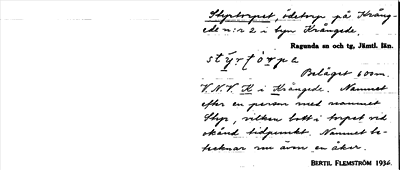 Styrtorpet, ödetorp på Kräng-
ede n:r 2 i byn Krångede.
Ragunda sn och tg, Jämtl. län.
Beläget 600 m.
V.N.V. K i Krångede. Namnet
efter en person med namnet
Styr, vilken bott i torpet vid
okänd tidpunkt. Namnet be-
tecknar nu även en åker.
BERTIL FLEMSTRÖM 1936.